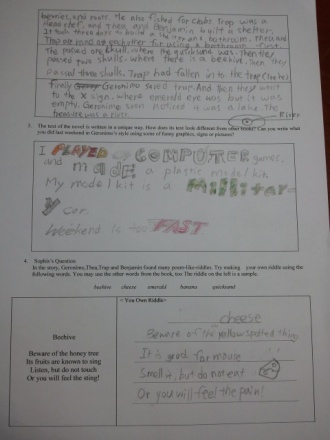 berries, and roots. He also fished for crabs. Trap was a
head chef, and Thea and Benjamin built a shelter.
It took three days to build a shelter and bathroom. Thea and
Trap at each other for using a bathroom first.
The passed one skull, where the quicksand was. Then they
passed two skulls, where there is a beehive. Then they
passed three skulls. Trap had fallen in to the trap (snake)
Firstly Geronimo saved Trap. And then they went
to the X sign, where emerald eye was but it was
empty. Geronimo soon noticed it was a lake. The
treasure was a ruin.
River
3. The text of the novel is written in a unique way. How does its text look different from other books? Can you write what
you did last weekend in Geronimo's style using some of funny graphics, signs or pictures?
I PLAYED COMPUTER games,
and made a plastic model kit.
My model kit is a Militar-
y car.
Weekend is too FAST
4. Sophie's Question
In the story, Geronimo, Thea, Trap and Benjamin found many poem-like-riddles. Try making your own riddle using the
following words. You may use the other words from the book, too. The riddle on the left is a sample.
beehive cheese emerald banana quicksand
Beehive
Beware of the honey tree
Its fruits are known to sing
Listen, but do not touch
Or you will feel the sting!
< You Own Riddle>
cheese
Beware of the yellow spotted thing
It is good for mouse
Smell it, but do not eat
Or you will feel the pain!